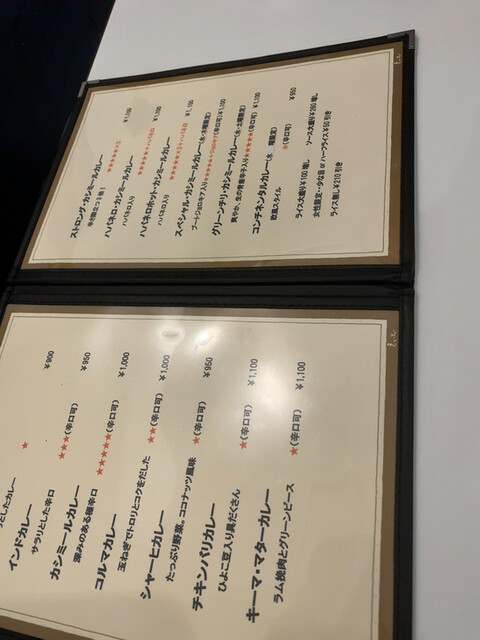 インドカレー
★ ¥900
サラリとした辛口
カシミールカレー
★★★(辛口可) ¥950
深みのある極辛口
コルマカレー
★★★★★(辛口可) ¥1,000
玉ねぎでトロリとコクをだした
シャーヒカレー
★★(辛口可) ¥1,000
たっぷり野菜。ココナッツ風味
チキンパリカレー
★(辛口可) ¥950
ひよこ豆入り具だくさん
キーマ・マターカレー
★(辛口可) ¥1,100
ラム挽肉とグリーンピース
★(辛口可) ¥1,100
ストロング・カシミールカレー
¥1,000
辛さ際立つ1種!
ハバネロ・カシミールカレー
¥1,100
ハバネロ入り
ハバネロホット・カシミールカレー
ハバネロ入り
スペシャル・カシミールカレー(水・木曜限定)
¥1,100
ブートジョロキア入り
グリーンチリ・カシミールカレー(水・土曜限定)
(辛口可) ¥1,100
爽やか、生の青唐辛子入り
コンチネンタルカレー
(辛口可) ¥1,100
欧風スタイル
★(辛口可) ¥950
ライス大盛り¥100増し
ソース大盛り¥260増し
女性限定・・少な目 or ハーフライス¥50引き
ライス無し¥210引き